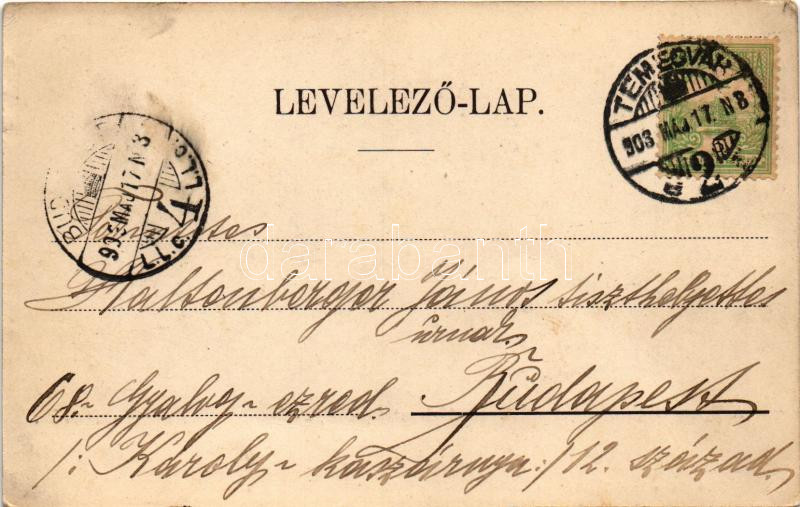 LEVELEZŐ-LAP.
TEMESVÁR
903 MÁJ 17. N 8
2
BUD
903 MAJ 17 N 8
darabanth
Haltenberger János tiszthelyettes
úrnak
68.- Gyalog-ezred. Budapest
/: Károly-kaszárnya:/ 12. század.